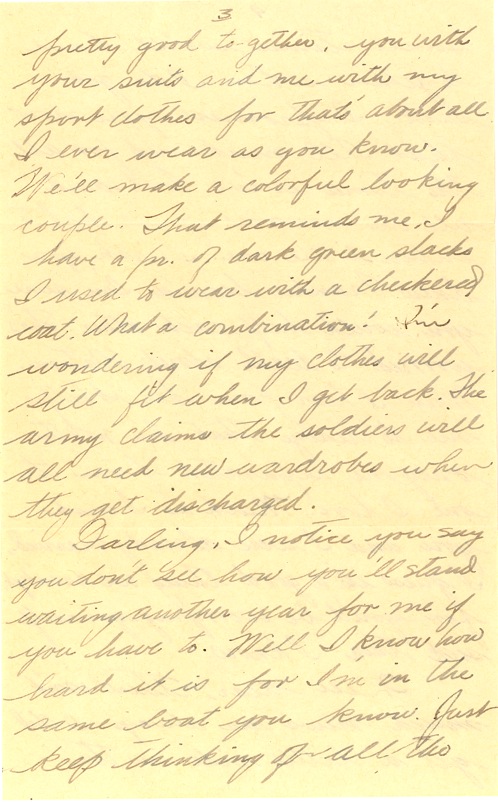 3
pretty good to-gether, you with
your suits and me with my
sport clothes for that's about all
I ever wear as you know.
We'll make a colorful looking
couple. That reminds me, I
have a pr. of dark green slacks
I used to wear with a checkered
coat. What a combination! I'm
wondering if my clothes will
still fit when I get back. The
army claims the soldiers will
all need new wardrobes when
they get discharged.
Darling, I notice you say
you don't see how you'll stand
waiting another year for me if
you have to. Well I know how
hard it is for I'm in the
same boat you know. Just
keep thinking of all the